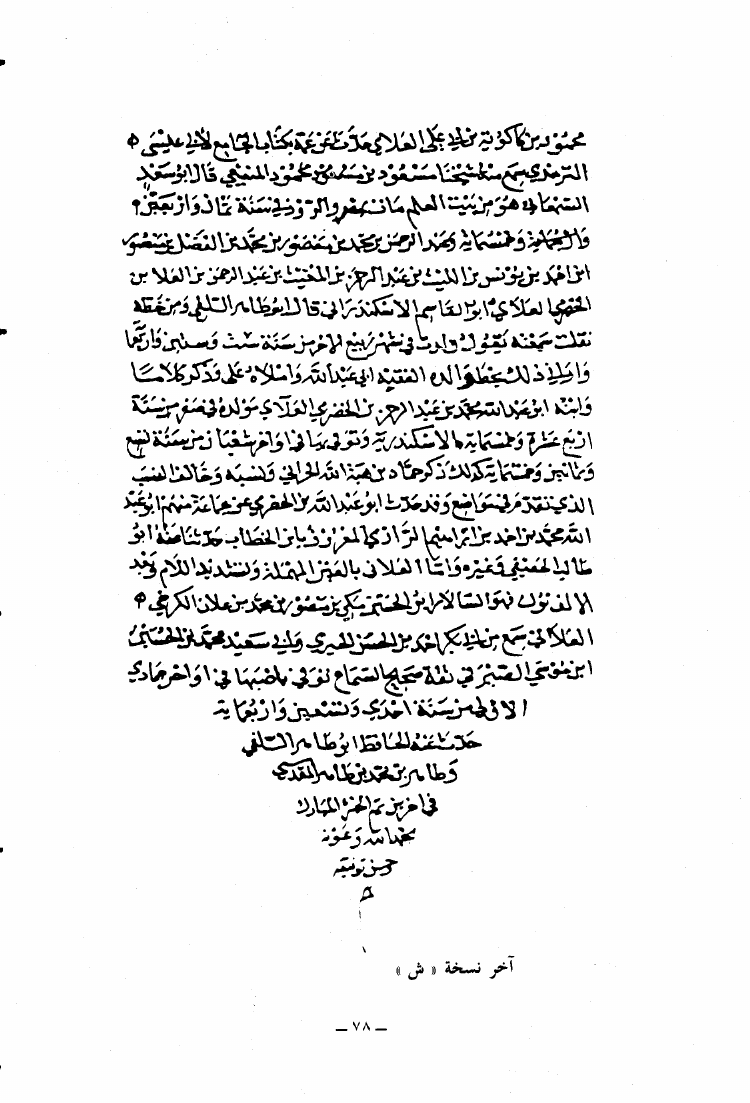 محمود بن كاكويه بن ابي علي العلائي حدث عن عمه بكتاب الجامع لأبي عيسى
الترمذي سمع منه شيخنا مسعود بن محمود المنيعي قال ابو سعد
السمعاني هو من بيت العلم مات بمرو الروذ في سنة ثمان واربعين
وخمسمائة وعبد الرحمن بن محمد بن منصور بن محمد بن الفضل بن منصور
ابن احمد بن يونس بن الليث بن عبد الرحمن بن المغيث بن عبد الرحمن بن العلا بن
الحضرمي العلائي ابو القاسم الاسكندراني قال ابو طاهر السلفي ومن خطه
نقلت سمعته يقول ولدت في شهر ربيع الاخر من سنة ست وستين واربعمائة
والده الفقيه ابي عبد الله واملاه علي وذكر كلاما
وابنه ابو عبد الله محمد بن عبد الرحمن بن الحضرمي العلائي مولده في صفر من سنة
اربع عشرة وخمسمائة بالاسكندرية وتوفي بها في اواخر شعبان من سنة تسع
وثمانين وخمسمائة كذلك ذكر حماد بن هبة الله الحراني ونسبه وخالف النسب
الذي تقدم في مواضع وقد حدث ابو عبد الله بن الحضرمي عن جماعة منهم ابو عبد
الله محمد بن احمد بن ابراهيم الرازي المعروف بابن الخطاب حدثنا عنه ابو
وغيره واما العلاني بالعين المهملة وتشديد اللام وبعد
الالف نون فهو السلار ابو الحسن مكي بن منصور بن محمد بن علان الكرجي
العلاني سمع من ابي بكر احمد بن الحسن الحيري وابي سعيد محمد بن
ابن موسى الصيرفي ثقة صحيح السماع توفي باصبهان في اواخر جمادي
الاولى من سنة احدى وتسعين واربعمائة
حدث عنه الحافظ ابو طاهر السلفي
وطاهر بن محمد بن طاهر المقدسي
في اخرين تم الجزء المبارك
بحمد الله وعونه
وحسن توفيقه
م
آخر نسخة « ش »
— ٧٨ —